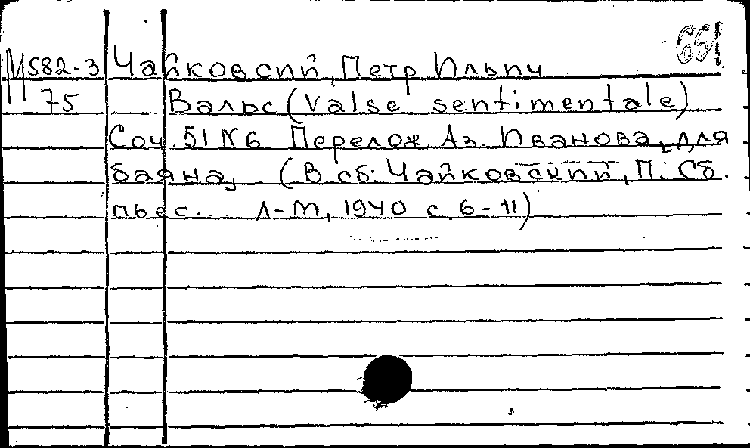 651
М582-3 Чайковский, Петр Ильич
75 Вальс (Valse sentimentale)
Соч. 51 №6 Перелож. Аз. Иванова для
баяна, (В сб: Чайковский, П. Сб.
пьес. Л-М, 1940 с. 6-11)